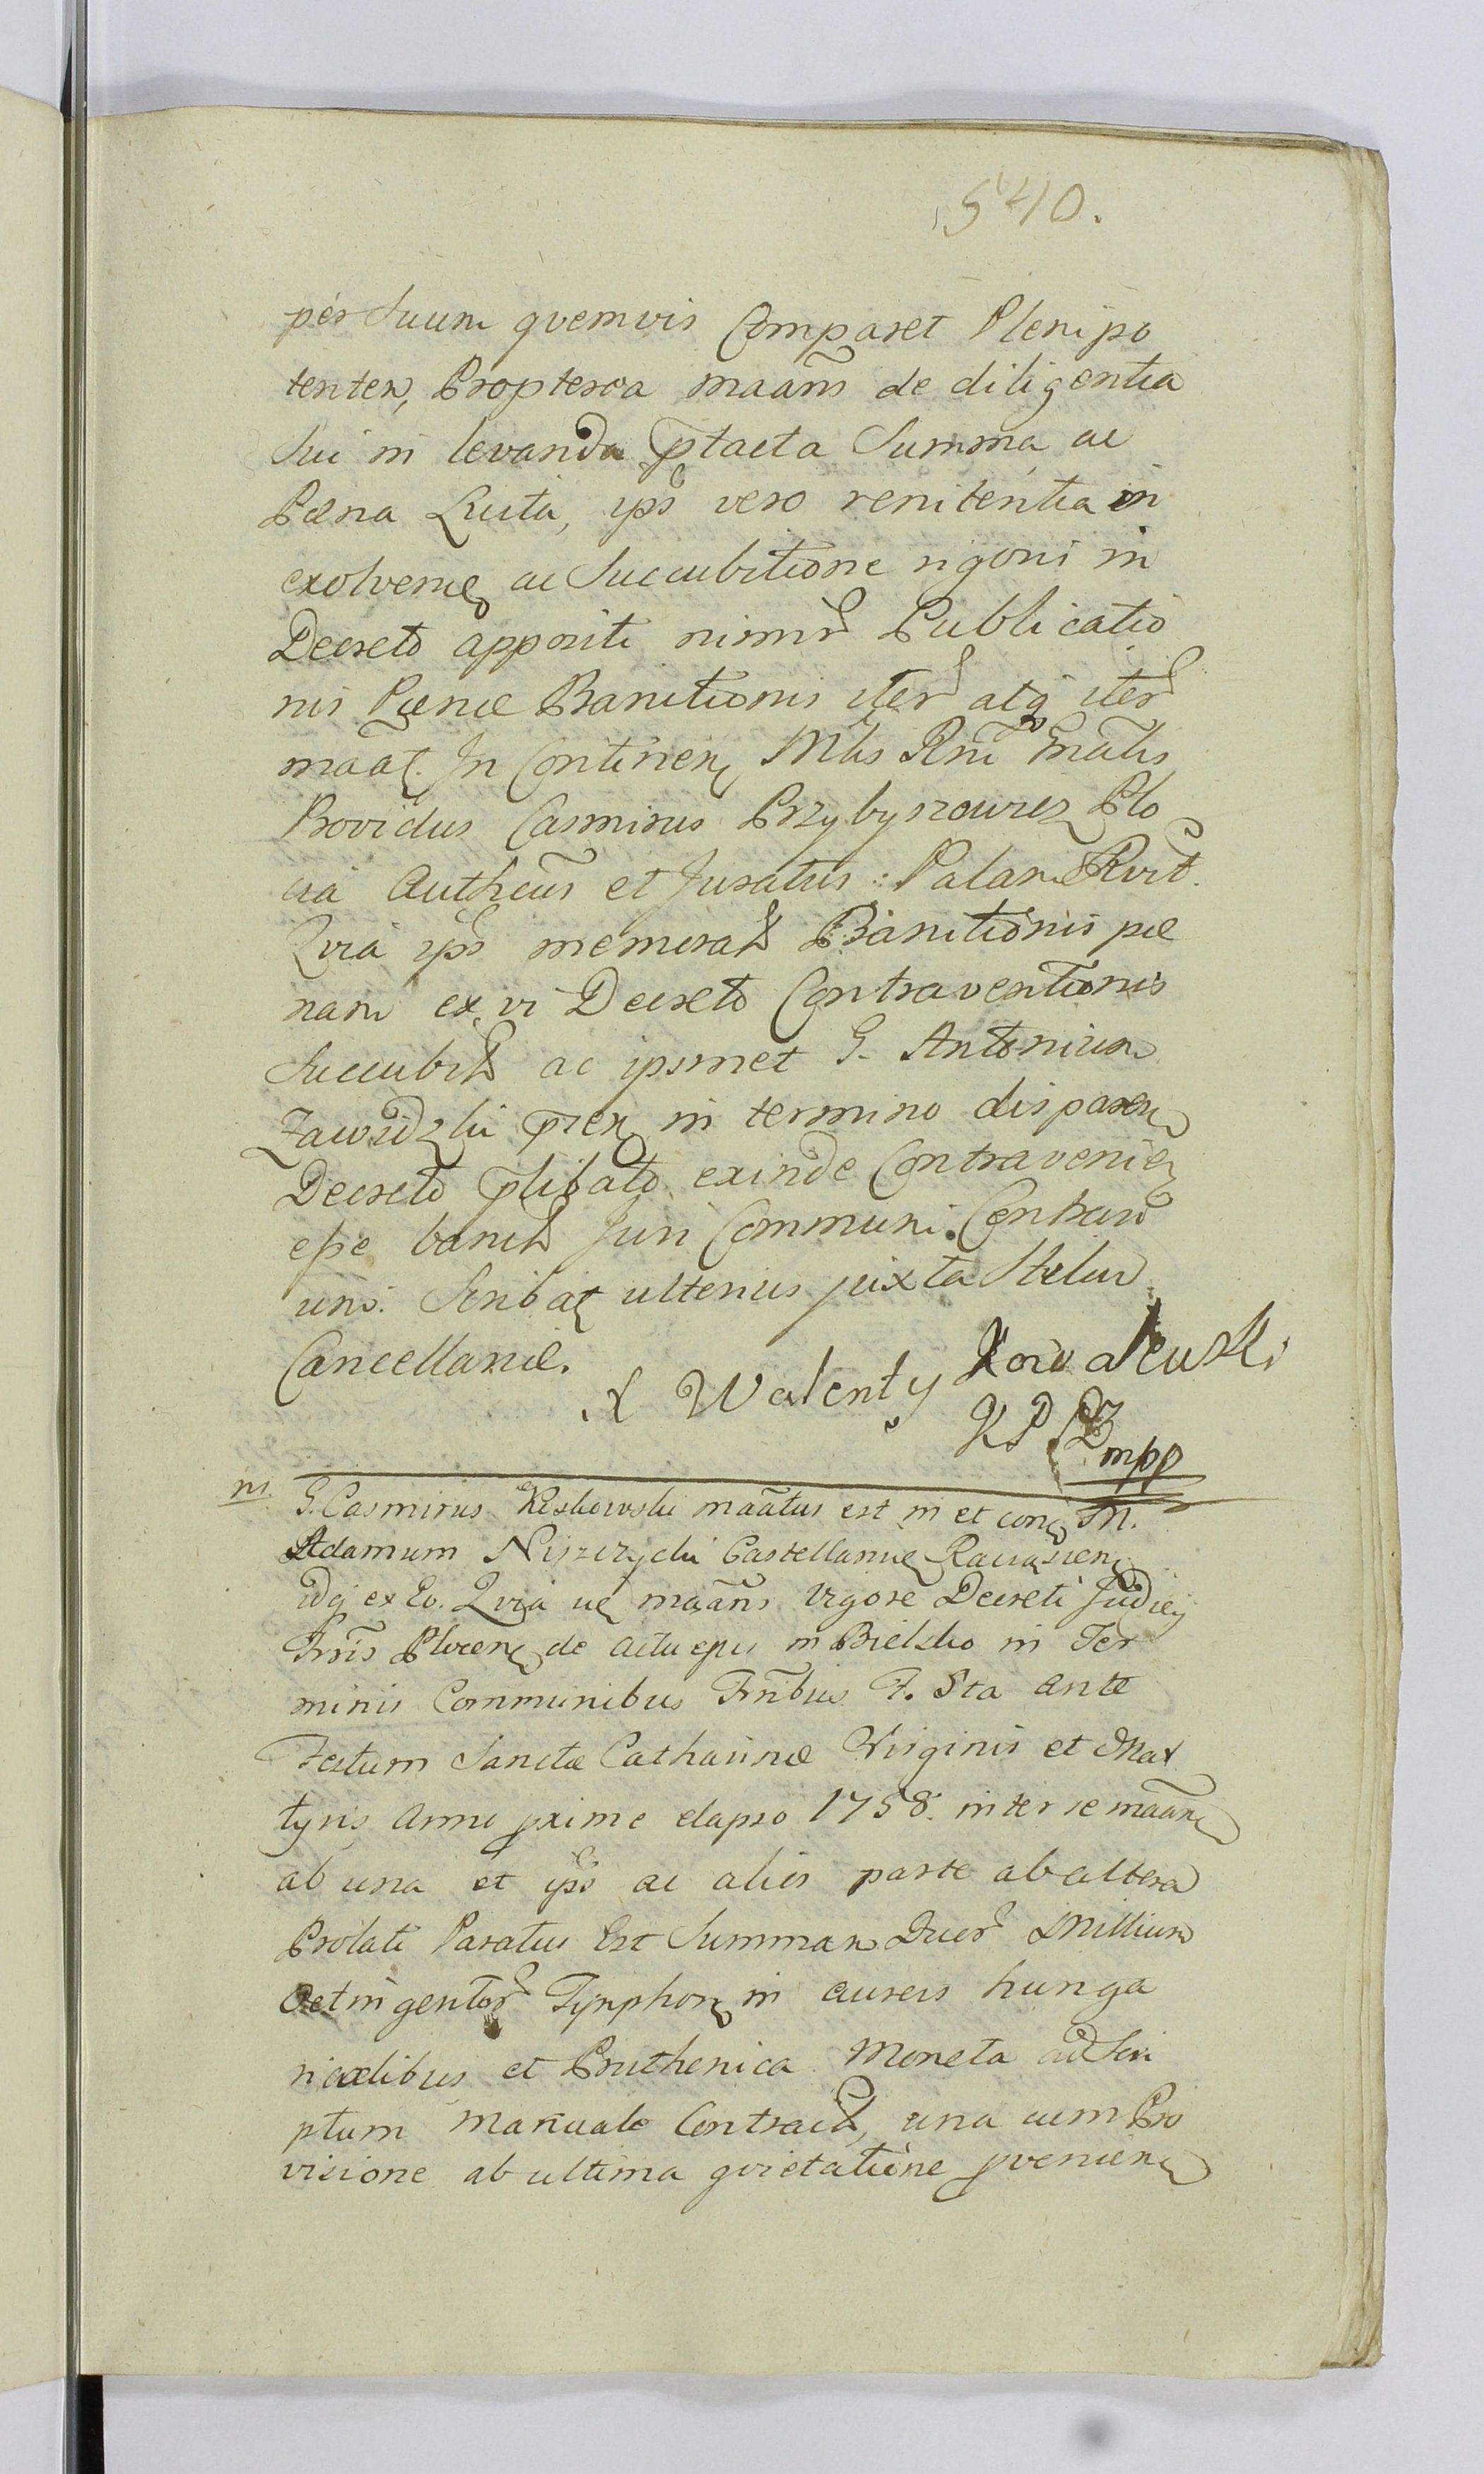 540.
per Suum qvemvis Comparet Plenipo
tenten, Propterea maãns de diligentia
Sui in levanda p̃tacta Summa ac
Pæna Luita, ips̃ vero renitentia in
exolven ac Succubitione rigori in
Decreto appositi nimir̃ Publicatio
nis Pœnæ Banitionis iter̃ atq iter̃
maãt. In Continen Mtis Rni Gnalis
Providus Casimirus Przybyszewicz Plo
cia Autheñs et Juratus: Palam Rvit.
Qvia ips̃ memorat Banitionis pæ
nam ex vi Decreto Contraventionis
Succubit ac ipsmet G. Antonium
Zawidzki p̃ren in termino disparen
Decreto p̃libato exinde Contravenien
eße banit Juri Communi Contrari
um. Scribat ulterius juxta Stilum
Cancellariæ.
X Walenty Kowalewski
K P B mpp
m. G. Casimirus Reskowski maãtus est in et con M.
Adamum Niszczycki Castellanum Raciazien
idq ex Eo. Qvia ue maãns vigore Decreti Judicij
Trrĩs Plocen de actu ejus in Bielsko in Ter
minis Communibus Trr̃bus F. 5ta ante
Festum Sanctæ Catharinæ Virginis et Mar
tyris Anno pxime elapso 1758. inter se maãn
ab una et ips̃ ac alios parte ab altera
Prolati Paratus Est Summam Duor̃ Millium
Octingentor̃ Tynphon in aureis hunga
ricalibus et Pruthenica Moneta ad Scri
ptum manuale Contract, una cum Pro
visione ab ultima qvietatione pvenien